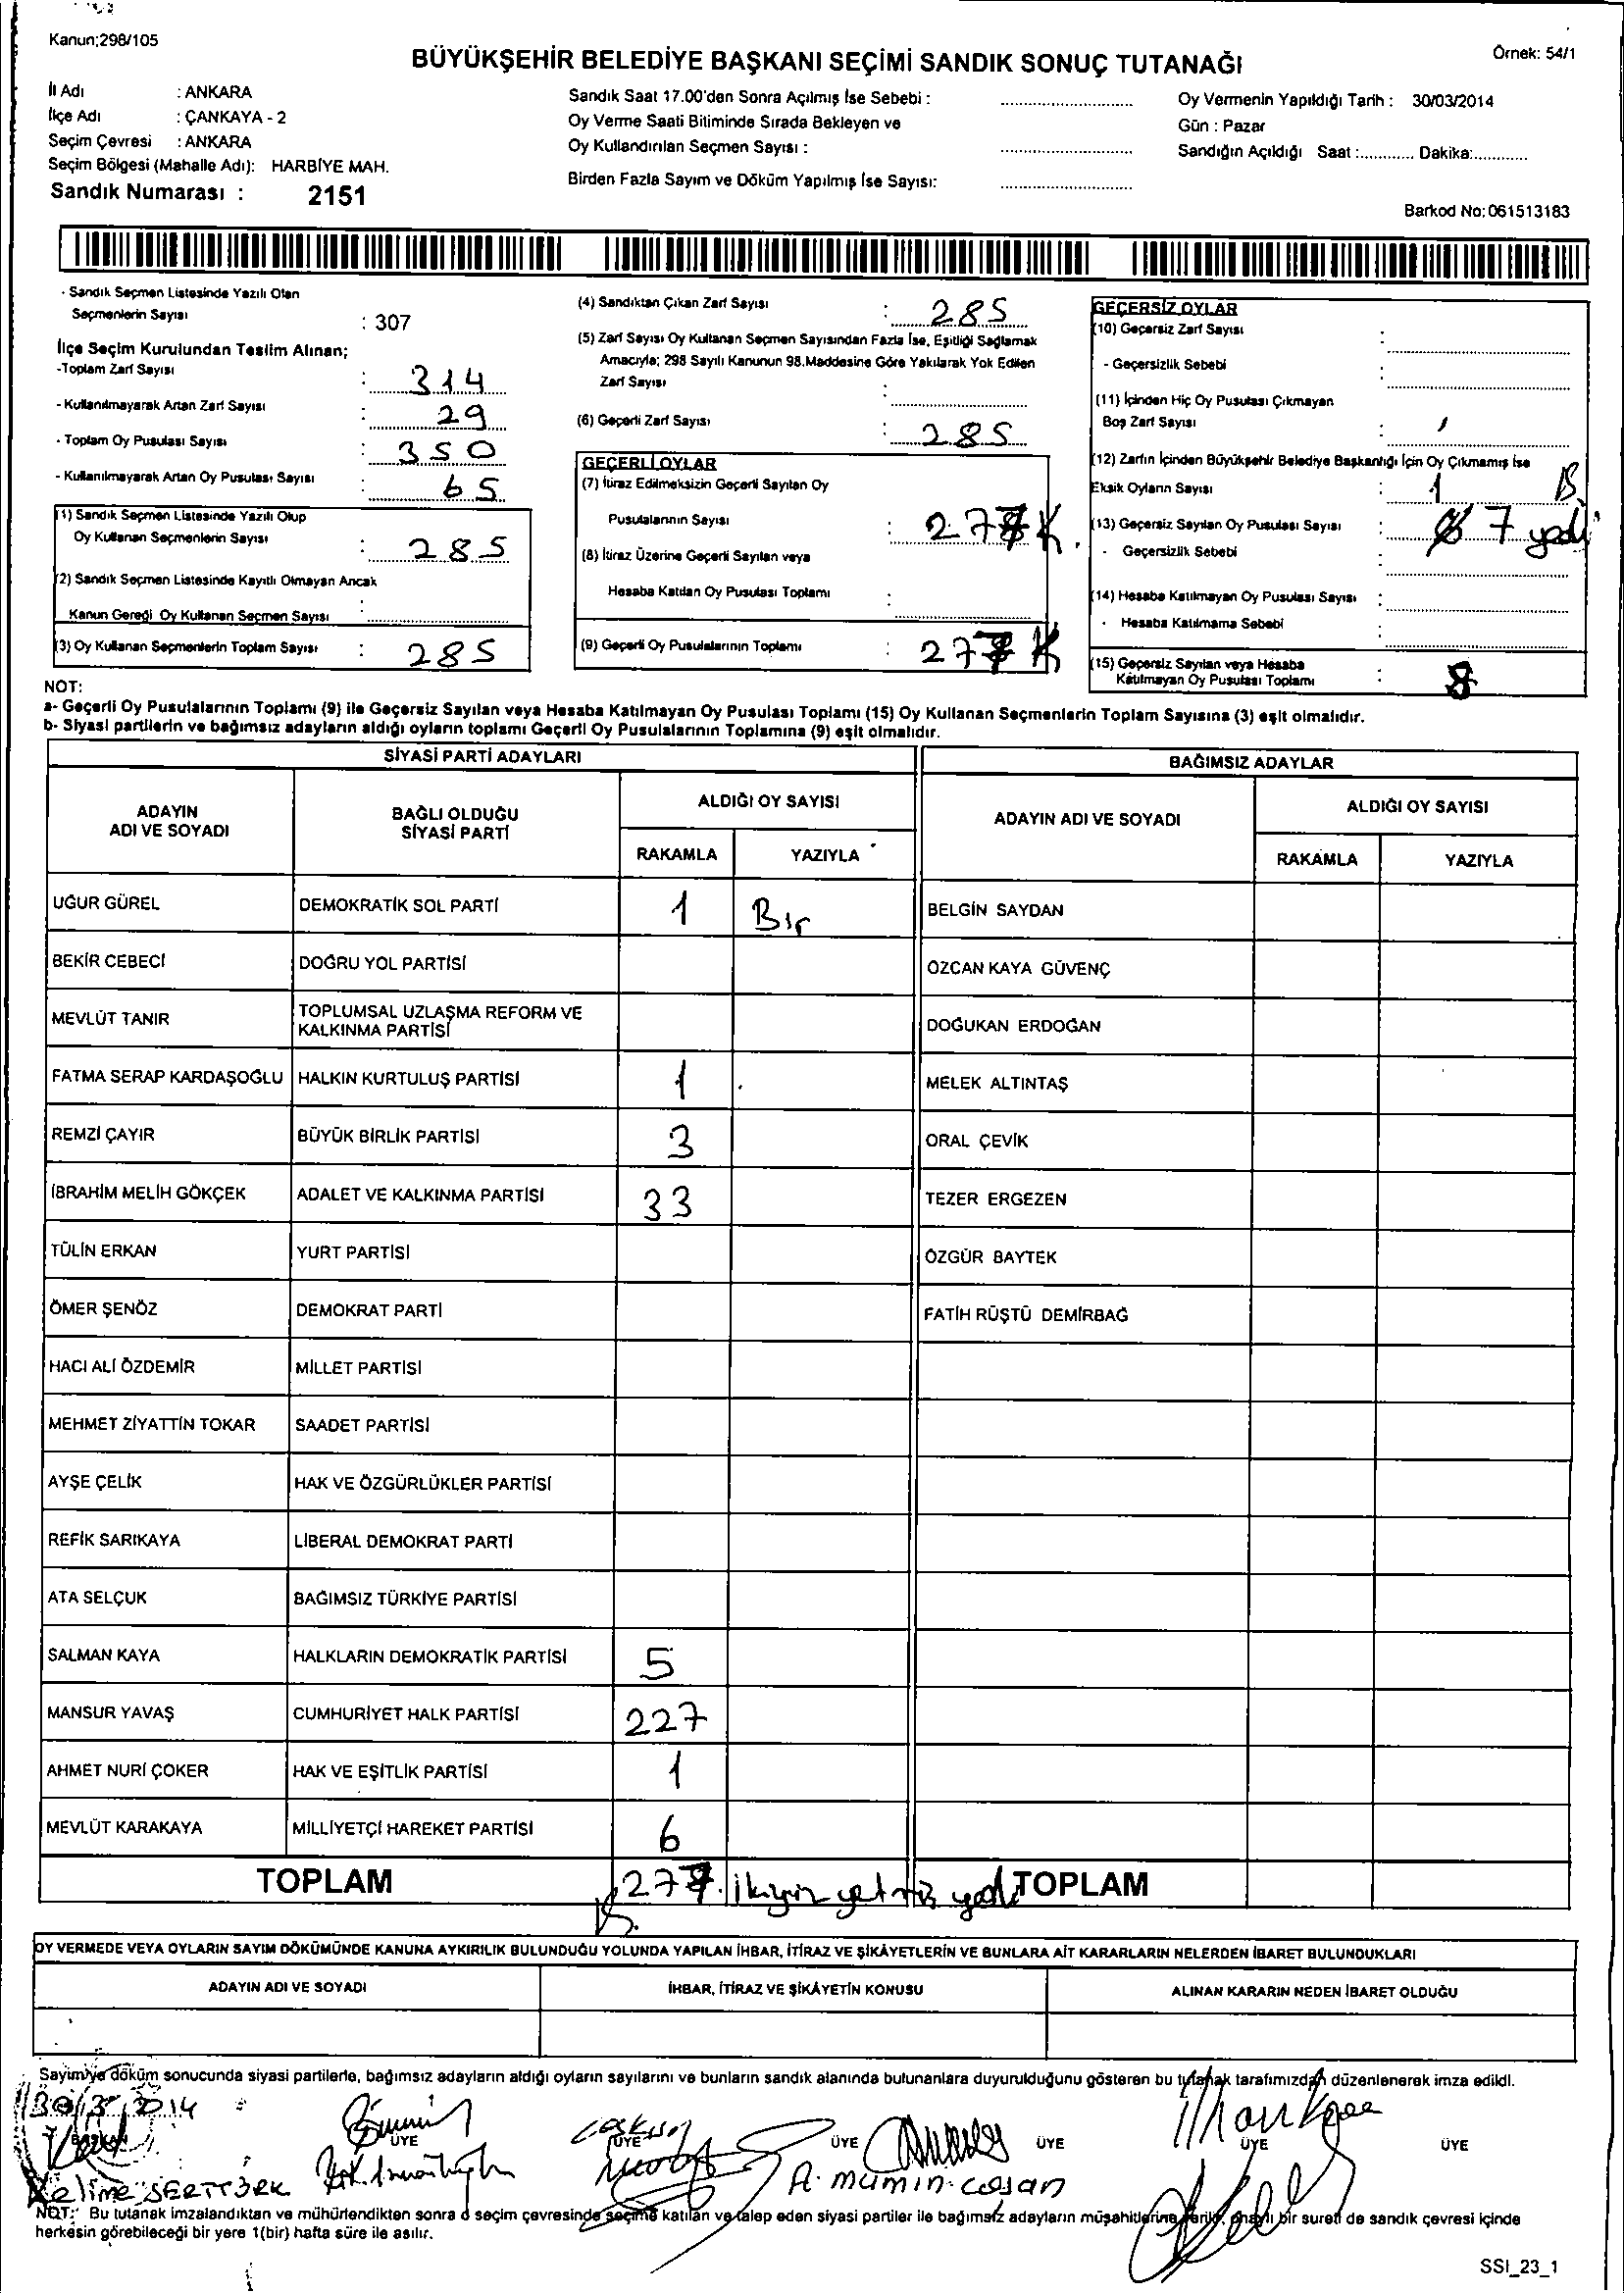 Kanun;298/105
BÜYÜKŞEHİR BELEDİYE BAŞKANI SEÇİMİ SANDIK SONUÇ TUTANAĞI
Örnek: 54/1
İl Adı : ANKARA
İlçe Adı : ÇANKAYA - 2
Seçim Çevresi : ANKARA
Seçim Bölgesi (Mahalle Adı): HARBİYE MAH.
Sandık Numarası : 2151
Sandık Saat 17.00'den Sonra Açılmış İse Sebebi :
Oy Verme Saati Bitiminde Sırada Bekleyen ve
Oy Kullandırılan Seçmen Sayısı :
Birden Fazla Sayım ve Döküm Yapılmış İse Sayısı:
Oy Vermenin Yapıldığı Tarih : 30/03/2014
Gün : Pazar
Sandığın Açıldığı Saat :............ Dakika:............
Barkod No: 061513183
- Sandık Seçmen Listesinde Yazılı Olan
Seçmenlerin Sayısı : 307
İlçe Seçim Kurulundan Teslim Alınan;
-Toplam Zarf Sayısı : 314
- Kullanılmayarak Artan Zarf Sayısı : 29
- Toplam Oy Pusulası Sayısı : 350
- Kullanılmayarak Artan Oy Pusulası Sayısı : 65
(1) Sandık Seçmen Listesinde Yazılı Olup
Oy Kullanan Seçmenlerin Sayısı : 285
(2) Sandık Seçmen Listesinde Kayıtlı Olmayan Ancak
Kanun Gereği Oy Kullanan Seçmen Sayısı :
(3) Oy Kullanan Seçmenlerin Toplam Sayısı : 285
(4) Sandıktan Çıkan Zarf Sayısı : 285
(5) Zarf Sayısı Oy Kullanan Seçmen Sayısından Fazla İse, Eşitliği Sağlamak
Amacıyla; 298 Sayılı Kanunun 98.Maddesine Göre Yakılarak Yok Edilen
Zarf Sayısı :
(6) Geçerli Zarf Sayısı : 285
GEÇERLİ OYLAR
(7) İtiraz Edilmeksizin Geçerli Sayılan Oy
Pusulalarının Sayısı : 277 K.
(8) İtiraz Üzerine Geçerli Sayılan veya
Hesaba Katılan Oy Pusulası Toplamı :
(9) Geçerli Oy Pusulalarının Toplamı : 277 K
GEÇERSİZ OYLAR
(10) Geçersiz Zarf Sayısı :
- Geçersizlik Sebebi :
(11) İçinden Hiç Oy Pusulası Çıkmayan
Boş Zarf Sayısı :
(12) Zarfın İçinden Büyükşehir Belediye Başkanlığı İçin Oy Çıkmamış İse
Eksik Oyların Sayısı : 1
(13) Geçersiz Sayılan Oy Pusulası Sayısı : 7 yedi
- Geçersizlik Sebebi :
(14) Hesaba Katılmayan Oy Pusulası Sayısı :
- Hesaba Katılmama Sebebi :
(15) Geçersiz Sayılan veya Hesaba
Katılmayan Oy Pusulası Toplamı : 8
NOT:
a- Geçerli Oy Pusulalarının Toplamı (9) ile Geçersiz Sayılan veya Hesaba Katılmayan Oy Pusulası Toplamı (15) Oy Kullanan Seçmenlerin Toplam Sayısına (3) eşit olmalıdır.
b- Siyasi partilerin ve bağımsız adayların aldığı oyların toplamı Geçerli Oy Pusulalarının Toplamına (9) eşit olmalıdır.
SİYASİ PARTİ ADAYLARI
BAĞIMSIZ ADAYLAR
ADAYIN
ADI VE SOYADI
BAĞLI OLDUĞU
SİYASİ PARTİ
ALDIĞI OY SAYISI
RAKAMLA YAZIYLA
ADAYIN ADI VE SOYADI
ALDIĞI OY SAYISI
RAKAMLA YAZIYLA
UĞUR GÜREL DEMOKRATİK SOL PARTİ 1 Bir BELGİN SAYDAN
BEKİR CEBECİ DOĞRU YOL PARTİSİ ÖZCAN KAYA GÜVENÇ
MEVLÜT TANIR TOPLUMSAL UZLAŞMA REFORM VE
KALKINMA PARTİSİ DOĞUKAN ERDOĞAN
FATMA SERAP KARDAŞOĞLU HALKIN KURTULUŞ PARTİSİ 1 MELEK ALTINTAŞ
REMZİ ÇAYIR BÜYÜK BİRLİK PARTİSİ 3 ORAL ÇEVİK
İBRAHİM MELİH GÖKÇEK ADALET VE KALKINMA PARTİSİ 33 TEZER ERGEZEN
TÜLİN ERKAN YURT PARTİSİ ÖZGÜR BAYTEK
ÖMER ŞENÖZ DEMOKRAT PARTİ FATİH RÜŞTÜ DEMİRBAĞ
HACI ALİ ÖZDEMİR MİLLET PARTİSİ
MEHMET ZİYATTİN TOKAR SAADET PARTİSİ
AYŞE ÇELİK HAK VE ÖZGÜRLÜKLER PARTİSİ
REFİK SARIKAYA LİBERAL DEMOKRAT PARTİ
ATA SELÇUK BAĞIMSIZ TÜRKİYE PARTİSİ
SALMAN KAYA HALKLARIN DEMOKRATİK PARTİSİ 5
MANSUR YAVAŞ CUMHURİYET HALK PARTİSİ 227
AHMET NURİ ÇOKER HAK VE EŞİTLİK PARTİSİ 1
MEVLÜT KARAKAYA MİLLİYETÇİ HAREKET PARTİSİ 6
TOPLAM 277 ikiyüz yetmiş yedi TOPLAM
OY VERMEDE VEYA OYLARIN SAYIM DÖKÜMÜNDE KANUNA AYKIRILIK BULUNDUĞU YOLUNDA YAPILAN İHBAR, İTİRAZ VE ŞİKÂYETLERİN VE BUNLARA AİT KARARLARIN NELERDEN İBARET BULUNDUKLARI
ADAYIN ADI VE SOYADI İHBAR, İTİRAZ VE ŞİKÂYETİN KONUSU ALINAN KARARIN NEDEN İBARET OLDUĞU
Sayım ve döküm sonucunda siyasi partilerle, bağımsız adayların aldığı oyların sayılarını ve bunların sandık alanında bulunanlara duyurulduğunu gösteren bu tutanak tarafımızdan düzenlenerek imza edildi.
30/3/2014
BAŞKAN ÜYE ÜYE ÜYE ÜYE ÜYE ÜYE
SERTTÜRK A. mümin coşan
NOT: Bu tutanak imzalandıktan ve mühürlendikten sonra o seçim çevresinde seçime katılan ve talep eden siyasi partiler ile bağımsız adayların müşahitlerine verilir, onaylı bir sureti de sandık çevresi içinde
herkesin görebileceği bir yere 1(bir) hafta süre ile asılır.
SSI_23_1